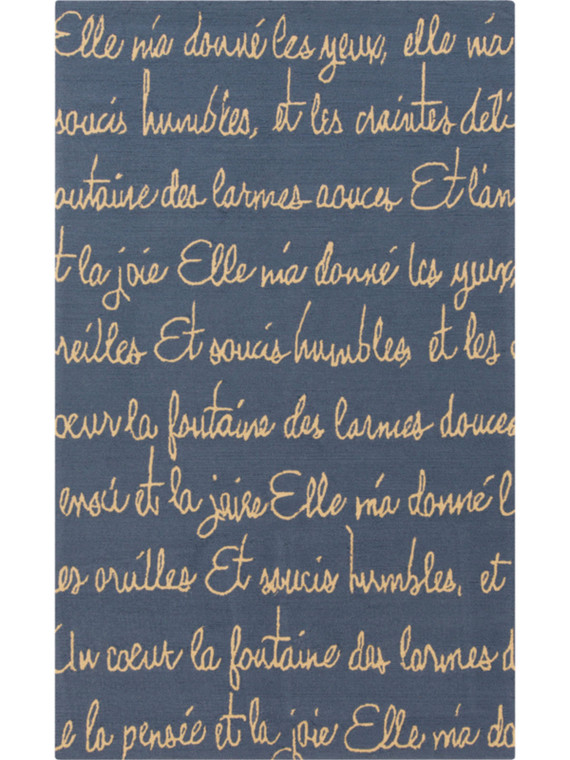 Elle m'a donné les yeux, elle m'a
soucis humbles, et les craintes déli
outaine des larmes aouces Et l'am
t la joie Elle m'a donné les yeux,
reilles Et soucis humbles, et les
oeur la fontaine des larmes douces
ensée et la joire Elle m'a donné l
es oreilles Et soucis humbles, et
Un coeur la fontaine des larmes d
e la pensée et la joie Elle m'a do